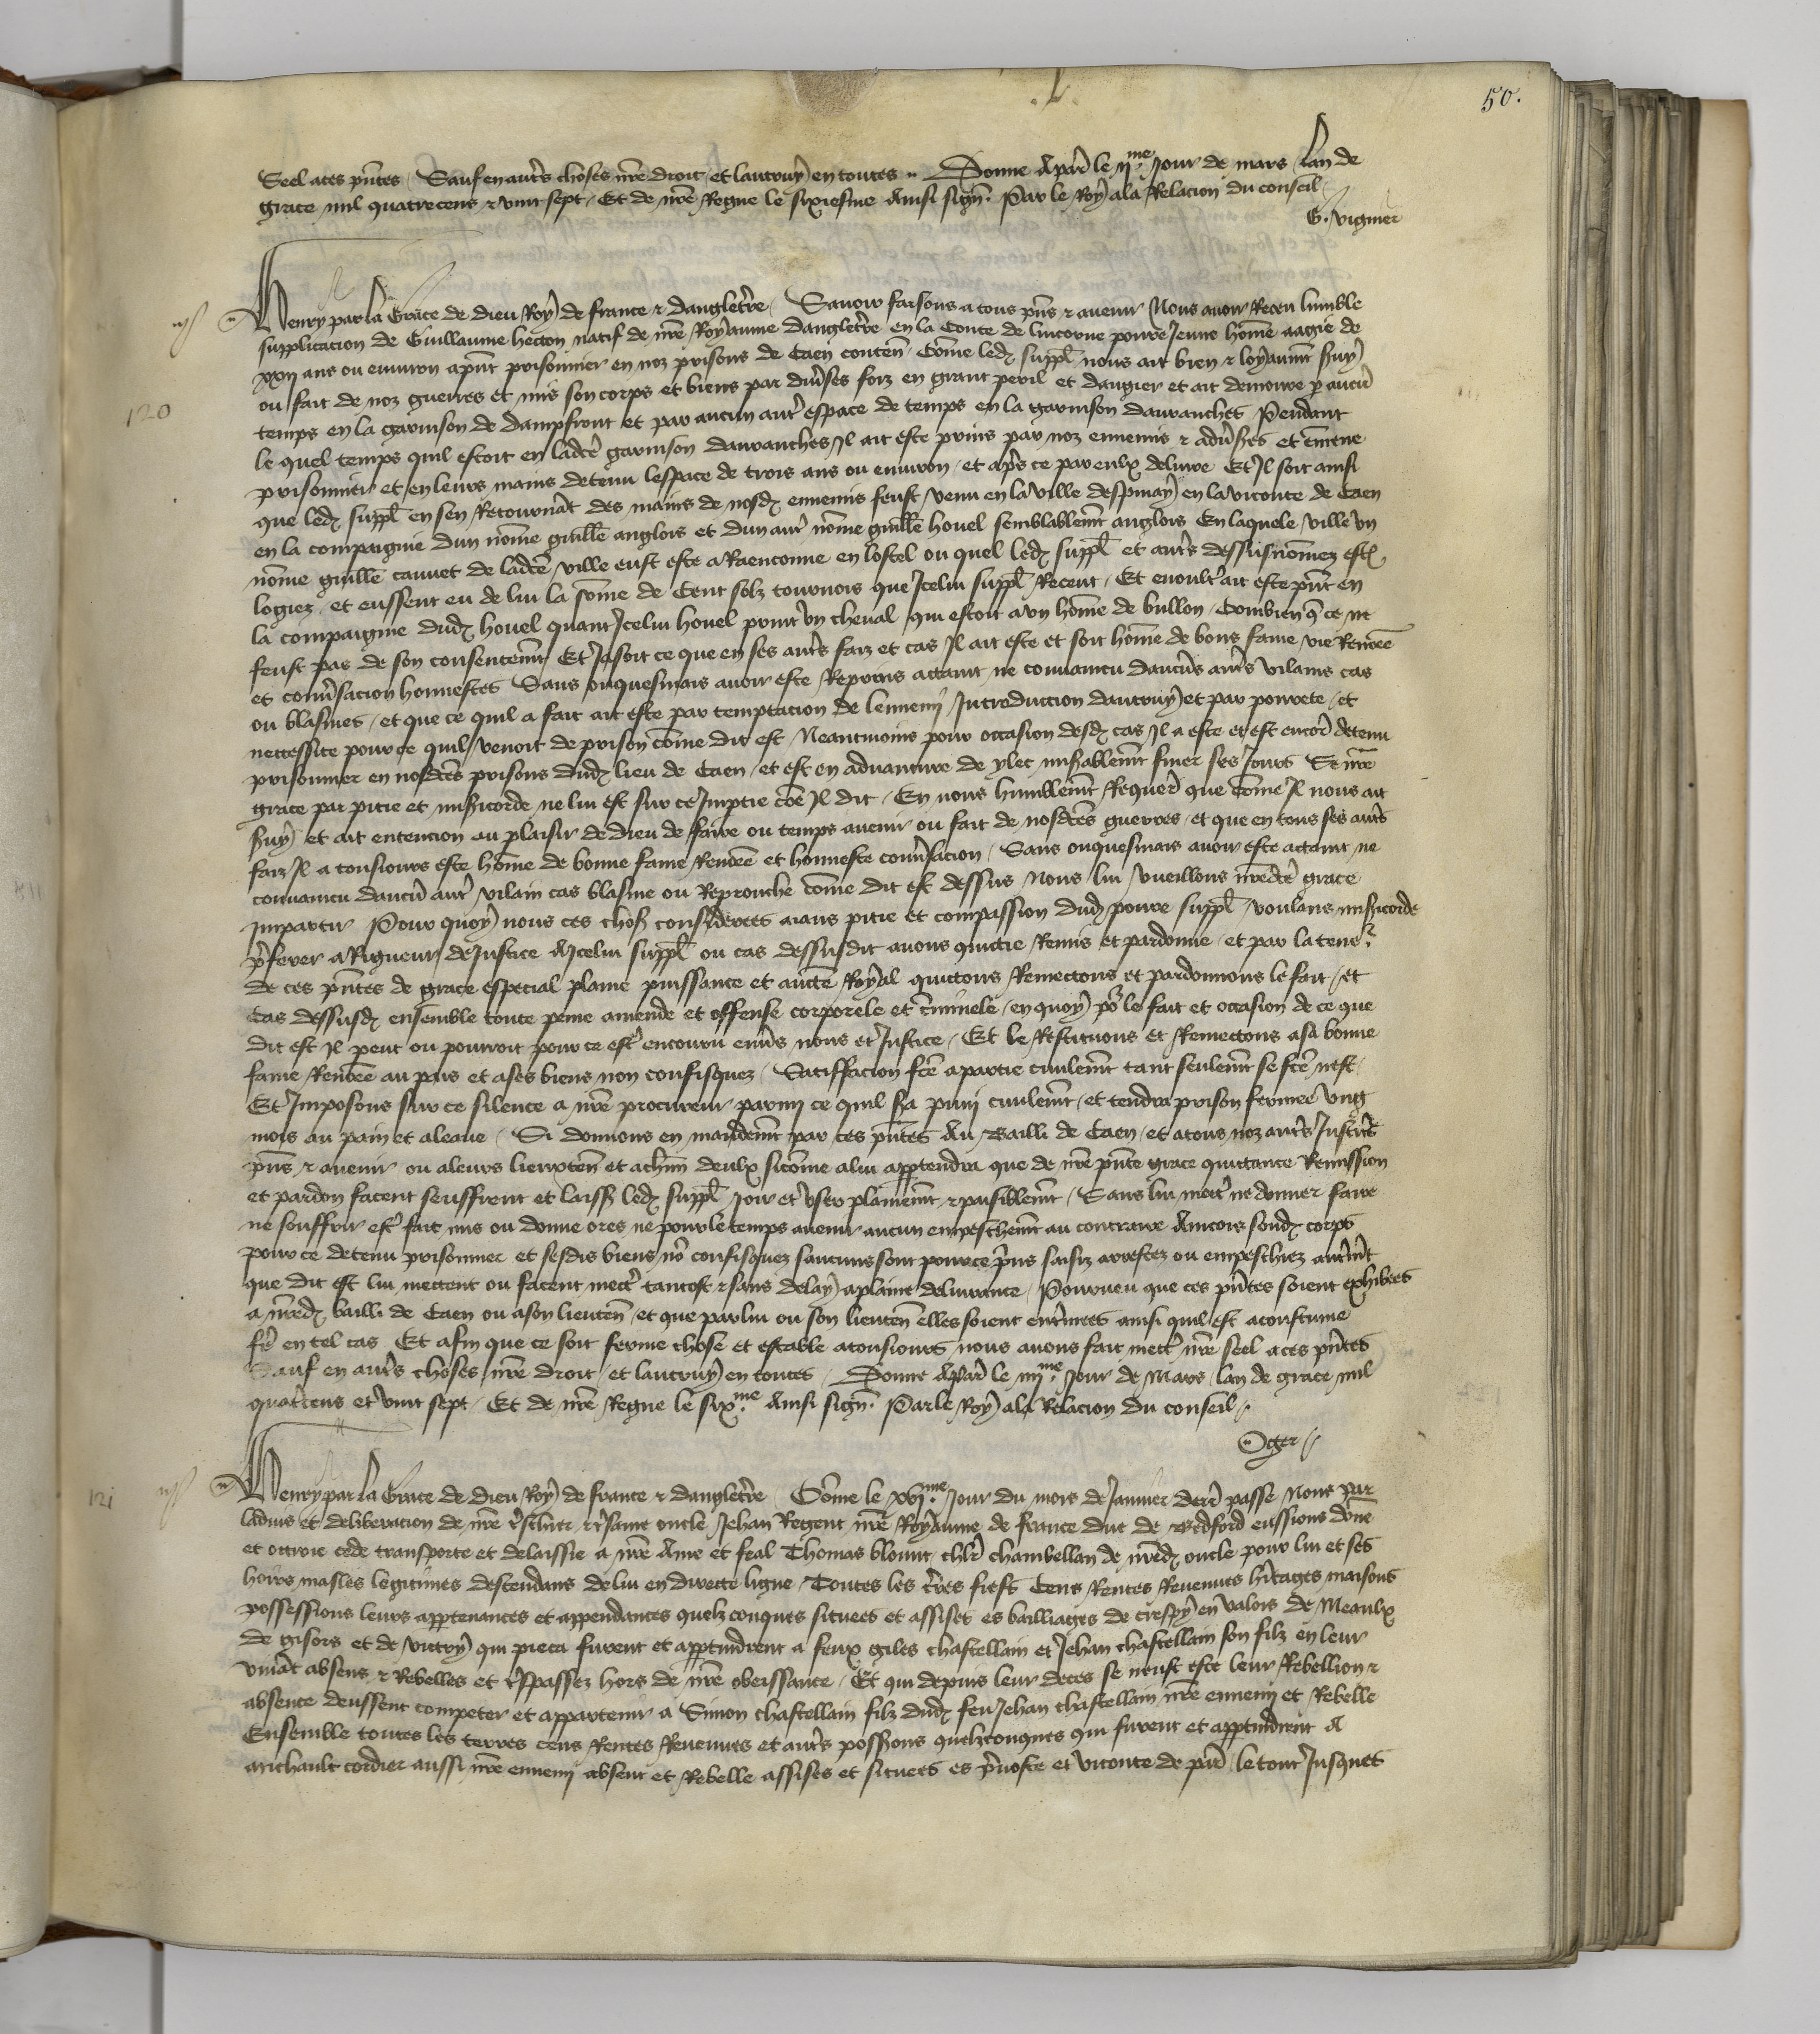 .L.
50.
Seel a ces pñtes / Sauf en autr̃s choses nr̃e droit et lautruy en toutes .. Donne A par̃ le ij.me Jour de mars / Lan de
grace mil quatrecens & vint sept / Et de nr̃e Regne le sixiesme Ainsi sign̄. Par le Roy a la Relacion du conseil
G. vignier
Henry par la Grace de dieu Roy de france & dangletr̃re / Sauoir faisons a tous p̃ns & auenir Nous auoir Receu lumble
supplicacion de Guillaume hecton natif de nr̃e Royaume dangletr̃re en la Conte de lincorne poure Jeune hōme aagie de
xxij ans ou enuiron a p̃nt prisonnier en noz prisons de Caen conten̄ / Cōme led. suppl̃ nous ait bien & loyaumt̃ s̃uy
ou fait de noz guerres et mis son corps et biens par diũses foiz en grant peril et dangier et ait demoure p̱ aucũ
120
temps en la garnison de dampfront et par aucun autr̃ espace de temps en la garnison dauranches Pendant
le quel temps quil estoit en ladc̃e garnison dauranches Il ait este prins par noz ennemis & adũs̃es et ēmene
prisonnier et en leurs mains detenu lespace de trois ans ou enuiron / et ap̃s ce par eulx deliure Et Il soit ainsi
que led. suppl̃ en sen Retournāt des mains de nosd. ennemis feust venu en la ville despinay en la viconte de Caen
en la compaignie dun nōme guillē anglois et dun autr̃ nōme guillē houel semblablemt̃ anglois En laquele ville vn
nōme guillē cauuet de ladc̃e ville eust este a Raenconne en lostel ou quel led. suppl̃ et autr̃s dessusnōmez est.
logiez / et eussent eu de lui la sōme de Cent solz tournois que Icelui suppl̃ Receut / Et enoultr̃ ait este p̃nt en
la compaignie dud. houel quant Icelui houel print vn cheual qui estoit a vn hōme de bullon / Combien q̃ ce ne
feust pas de son consentemt̃ Et Ja soit ce que en ses autr̃s faiz et cas Il ait este et soit hōme de bons fame, vie Renōee
et conũsacion honnestes Sans onquesmais auoir este Reprins attaint ne conuaincu daucũs autr̃s vilains cas
ou blasmes / et que ce quil a fait ait este par temptacion de lennemi Introduccion dautruy et par pourete / et
necessite pour ce quil venoit de prison cōme dit est / Neantmoins pour occasion desd. cas Il a este et est encor̃ detenu
prisonnier en nosdc̃es prisons dud. lieu de Caen / et est en aduanture de ylec mis̃ablemt̃ finer ses Jours Se nr̃e
grace par pitie et mis̃icorde ne lui est sur ce Imptie cōe Il dit / En nous humblemt̃ Requer̃ que cōme Il nous ait
s̃uy et ait entencion au plaisir de dieu de faire ou temps auenir ou fait de nosdc̃es guerres / et que en tous ses autr̃s
faiz Il a tousiours este hōme de bonne fame Renōee et honneste conũsacion / Sans onquesmais auoir este attaint ne
conuaincu daucũ autr̃ vilain cas blasme ou Reprouche cōme dit est dessus Nous lui vueillons nr̃edc̃e grace
Impartir Pour quoy nous ces chos̃ considerees aians pitie et compassion dud. poure suppl̃ voulans mis̃icorde
p̃ferer a Rigueur de Justice A Icelui suppl̃ ou cas dessusdit auons quictie Remis et pardonne / et par la tener̃
de ces p̃ntes de grace especial plaine puissance et auctē Royal quictons Remectons et pardonnons le fait / et
Cas dessusd. ensemble toute peine amende et offense corporele et c̃iminele / en quoy po͛ le fait et occasion de ce que
dit est Il peut ou pourroit pour ce estr̃ encouru enũs nous et Justice / Et le Restituons et Remectons a sa bonne
fame Renōee au pais et a ses biens non confisquez / Satiffacion fc̃e a partie ciuilemt̃ tant seulemt̃ se fc̃e nest /
Et Imposons sur ce silence a nr̃e procureur parmi ce quil s̃a puni ciuilemt̃ / et tendra prison fermee vng
mois au pain et a leaue / Si donnons en mandemt̃ par ces p̃ntes Au Bailli de Caen / et a tous noz autr̃s Justic̃s
p̃ns & auenir ou a leurs lieuxten̄ et a ch̄un deulx sicōme a lui app̱tendra que de nr̃e p̃nte grace quittance Remission
et pardon facent seuffrent et laiss̃ led. suppl̃ Joir et vser plainemt̃ & paisiblemt̃ / Sans lui mectr̃ ne donner faire
ne souffrir estr̃ fait mis ou donne ores ne pour le temps auenir aucun empeschemt̃ au contraire Aincois sond. corps
pour ce detenu prisonnier et sesdis biens nō confisquez saucuns sont pour ce p̃ns saisiz arrestez ou empeschiez autr̃mt̃
que dit est lui mectent ou facent mectr̃ tantost & sans delay a plaine deliurance / Pourueu que ces p̃ntes soient exhibees
a nr̃ed. bailli de Caen ou a son lieuten̄ / et que par lui ou son lieuten̄ elles soient entr̃inees ainsi quil est acoustume
fe͛ en tel cas Et afin que ce soit ferme chose et estable a tousiours nous auons fait mectr̃ nr̃e seel a ces p̃ntes
Sauf en autr̃s choses nr̃e droit / et lautruy en toutes / Donne A par̃ le iiij.me Jour de Mars / lan de grace mil
quatr̃cens et vint sept / Et de nr̃e Regne le six.me Ainsi sign̄. Par le Roy a la Relacion du conseil /.
Oger
121
Henry par la Grace de dieu Roy de france & dangletr̃re / Cōme le xvj.me Jour du mois de Januier derr̃ passe Nous par
laduis et deliberacion de nr̃e tr̃schier & tr̃same oncle Jehan Regent nr̃e Royaume de france duc de Bedford eussions dōne
et ottroie cede transporte et delaissie a nr̃e Ame et feal Thomas blount chlr̃ chambellan de nr̃ed. oncle pour lui et ses
hoirs masles legitimes descendans de lui en directe ligne / Toutes les tr̃res fiefs Cens Rentes Reuenues hr̃itages maisons
possessions leurs app̱tenances et appendances quelzconques situees et assises es bailliages de crespy en valois de Meaulx
de gisors et de victry qui pieca furent et app̱tindrent a feux giles chastellain et Jehan chastellain son filz en leur
viuāt absens & Rebelles et tr̃spassez hors de nr̃e obeissance / Et qui depuis leur deces se neust este leur Rebellion &
absence deussent competer et appartenir a Simon chastellain filz dud. feu Jehan chastellain nr̃e ennemi et Rebelle
Ensemble toutes les terres cens Rentes Reuenues et autr̃s poss̃ions quelzconques qui furent et app̱tindrent A
arichault cordier aussi nr̃e ennemi absent et Rebelle assises et situees es p̃uoste et viconte de par̃ / le tout Jusques